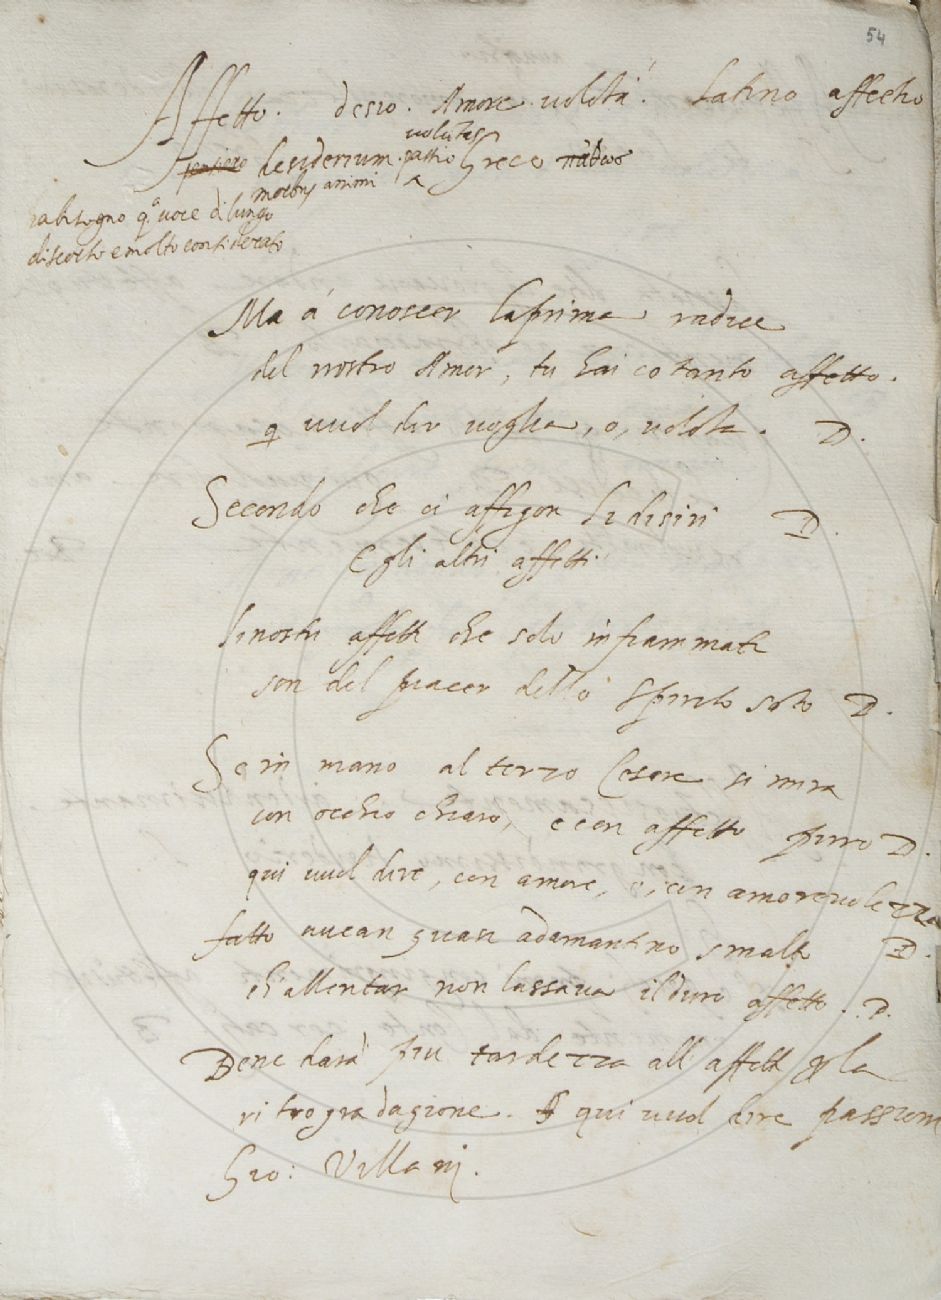 54
Affetto. desio. Amore. volõta. Latino affectio
pensiero desiderium. passio Greco πάθος
voluntas
morbus animi
discorso e molto considerato
Ma á conoscer la prima radice
del nostro Amor, tu hai cotanto affetto.
q vuol dir voglia, o, volõta. D.
Secondo che ci affigon li disiri D.
E gli altri affetti
Li nostri affetti che solo infiammati
son del piacer dello Spirito s̃to D.
Se in mano al terzo Cesare si mira
con occhio chiaro, e con affetto puro D.
qui vuol dire, con amore, o, con amorevolezza
fatto avean quasi adamantino smalto D.
ch allentar non lassava il duro affetto. D.
Bene darà piu tardezza all affetti p la
ritrogradagione. qui vuol dire passioni
Gio: Villani.